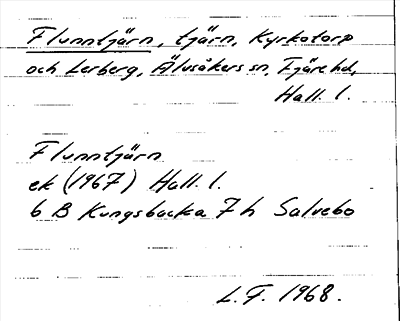 Flunntjärn, tjärn, Kyrkotorp
och Lerberg, Älvsåkers sn, Fjäre hd,
Hall. l.
Flunntjärn
ek (1967) Hall. l.
6 B Kungsbacka 7 h Salvebo
L. F. 1968.